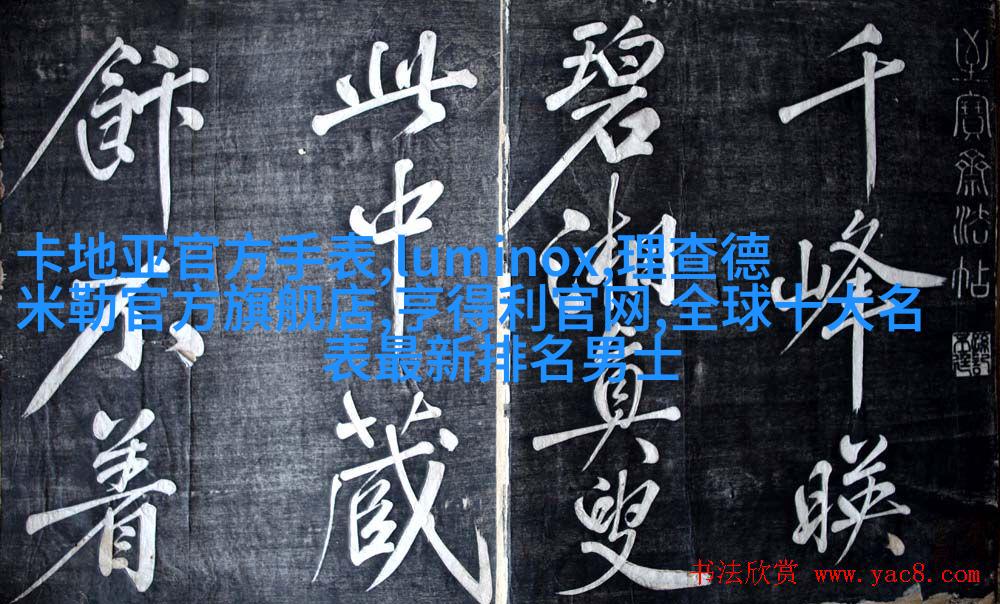 至寶齋法帖
千峰暎
碧湘真叟
此中藏
飰不着
卡地亚官方手表,luminox,理查德
米勒官方旗舰店,亨得利官网,全球十大名
表最新排名男士
书法欣赏 www.yac8.com